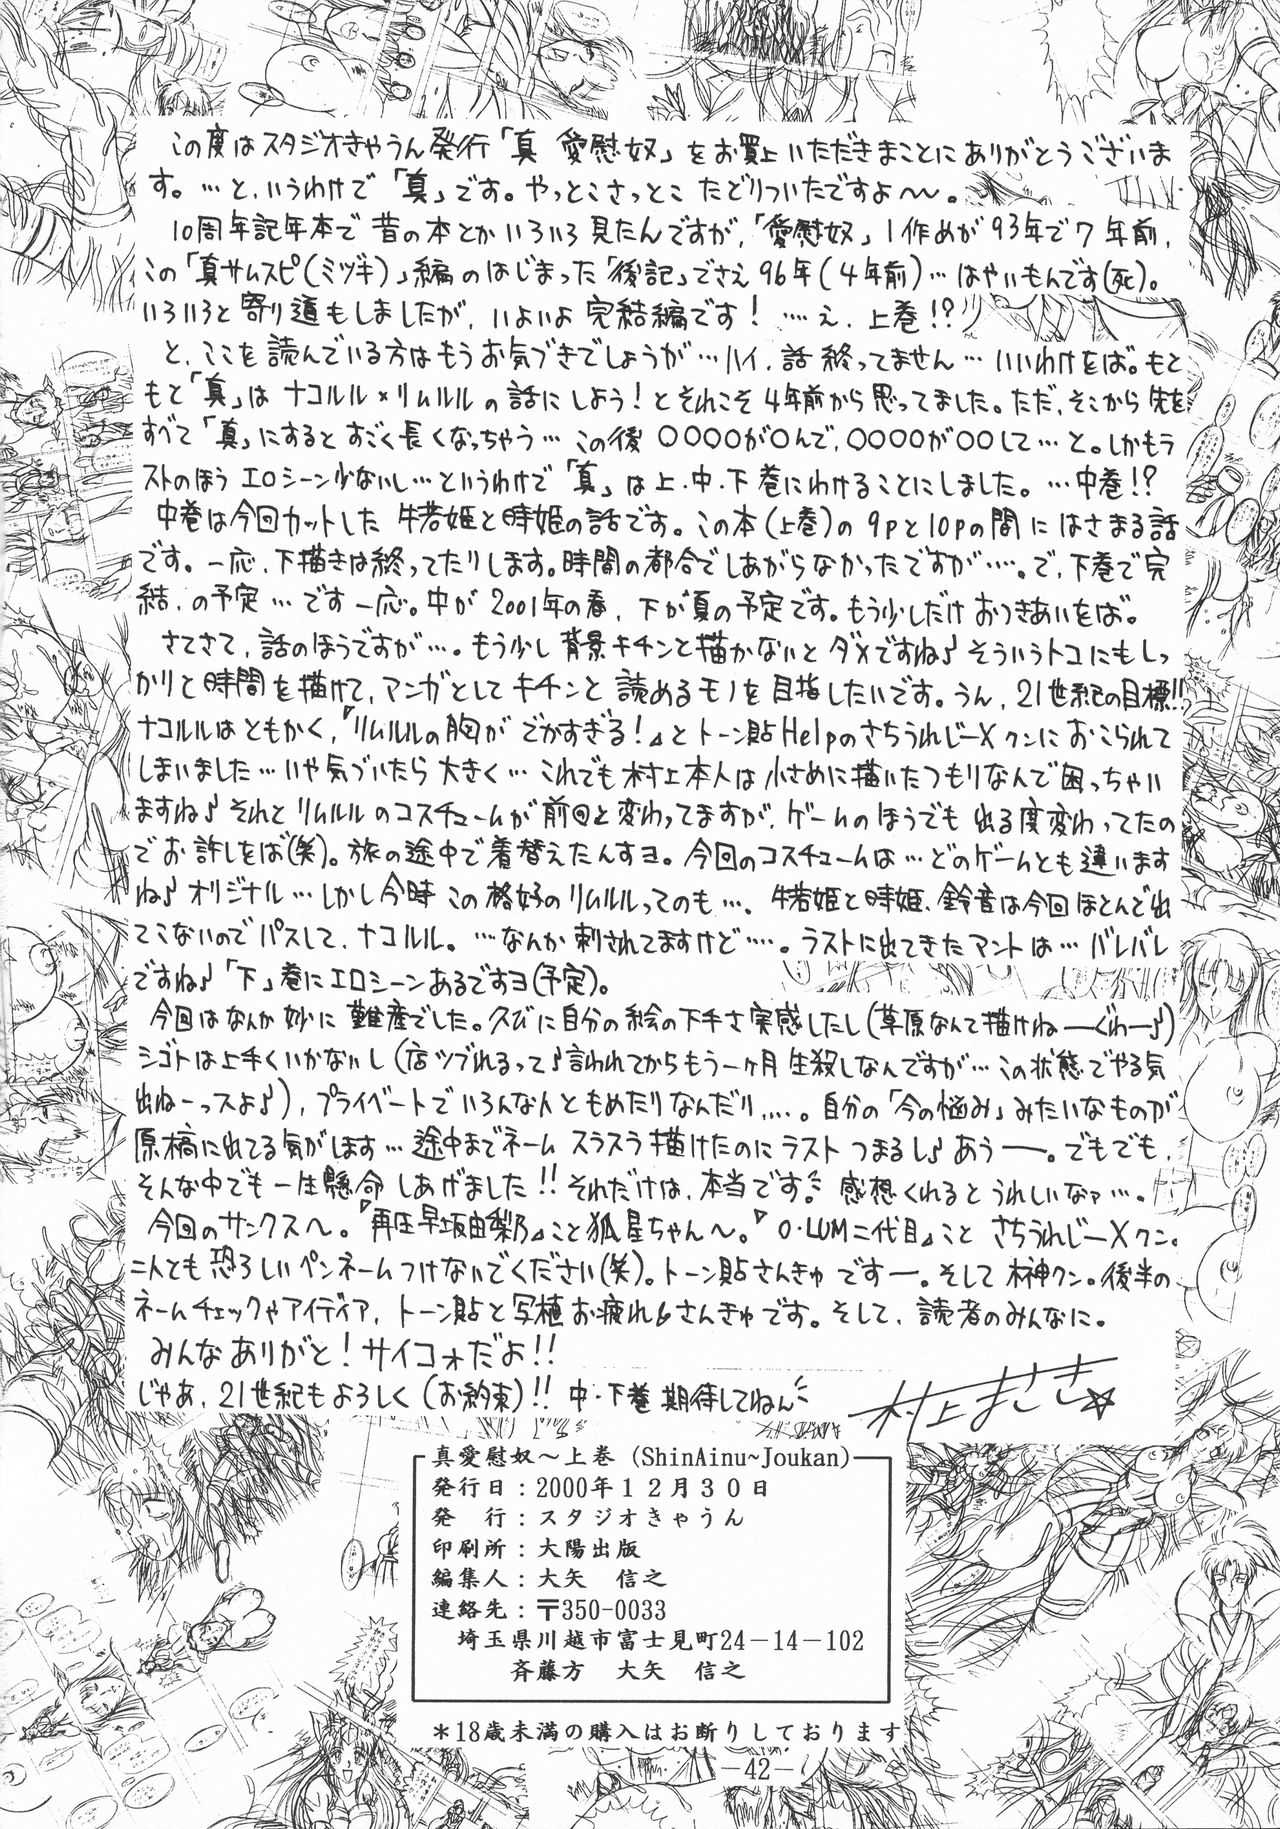 この度はスタジオきゃうん発行「真 愛慰奴」をお買上いただきまことにありがとうございま
す。…と、いうわけで「真」です。やっとこさっとこ たどりついたですよ〜。
10周年記年本で昔の本とかいろいろ見たんですが、「愛慰奴」1作めが93年で7年前、
この「真サムスピ(ミヅキ)」編のはじまった「後記」でさえ96年(4年前)…はやいもんです(死)。
いろいろと寄り道もしましたが、いよいよ完結編です! …え、上巻!?
と、ここを読んでいる方はもうお気づきでしょうが…ハイ、話終ってません…いいわけをば。もと
もと「真」はナコルル×リムルルの話にしよう!とそれこそ4年前から思ってました。ただ、そこから先を
すべて「真」にするとすごく長くなっちゃう…この後○○○○が○んで、○○○○が○○して…と。しかもラ
ストのほうエロシーン少ないし…というわけで「真」は上・中・下巻にわけることにしました。…中巻!?
中巻は今回カットした牛若姫と時姫の話です。この本(上巻)の9pと10pの間にはさまる話
です。一応、下描きは終ってたりします。時間の都合でしあがらなかったですが…。で、下巻で完
結、の予定…です一応。中が2001年の春、下が夏の予定です。もう少しだけおつきあいをば。
さてさて、話のほうですが…。もう少し背景キチンと描かないとダメですね♪そういうトコにもしっ
かりと時間を描けて、マンガとしてキチンと読めるモノを目指したいです。うん、21世紀の目標!!
ナコルルはともかく、『リムルルの胸がでかすぎる!』とトーン貼Helpのさちうれじー✕クンにおこられて
しまいました…いや気づいたら大きく…これでも村上本人は小さめに描いたつもりなんで困っちゃい
ますね♪それとリムルルのコスチュームが前回と変わってますが、ゲームのほうでも出る度変わってたの
でお許しをば(笑)。旅の途中で着替えたんすヨ。今回のコスチュームは…どのゲームとも違います
ね♪オリジナル…しかし今時この格好のリムルルってのも…。牛若姫と時姫、鈴音は今回ほとんど出
てこないのでパスして、ナコルル。…なんか刺されてますけど…。ラストに出てきたマントは…バレバレ
ですね♪「下」巻にエロシーンあるですヨ(予定)。
今回はなんか妙に難産でした。久びに自分の絵の下手さ実感したし(草原なんて描けねーぐわー♪)
シゴトは上手くいかないし(店ツブれるって♪言われてからもう一ヶ月生殺しなんですが…この状態でやる気
出ねーっスよ♪)、プライベートでいろんな人ともめたりなんだり…。自分の「今の悩み」みたいなものが
原稿に出てる気がします…途中までネームスラスラ描けたのにラストつまるし♪あうー。でもでも、
そんな中でも一生懸命しあげました!!それだけは、本当です。感想くれるとうれしいなァ…。
今回のサンクスへ。『再圧早坂由梨乃』こと狐星ちゃんへ。『O・LUM二代目』ことさちうれじー✕クン。
二人とも恐ろしいペンネームつけないでください(笑)。トーン貼さんきゅですー。そして榊クン。後半の
ネームチェックやアイディア、トーン貼と写植お疲れ&さんきゅです。そして、読者のみんなに。
みんなありがと!サイコォだよ!!
じゃあ、21世紀もよろしく(お約束)!! 中・下巻期待してねん
村上まさき☆
真愛慰奴～上巻 (ShinAinu~Joukan)
発行日：2000年１２月３０日
発　行：スタジオきゃうん
印刷所：大陽出版
編集人：大矢　信之
連絡先：〒350-0033
埼玉県川越市富士見町24－14－102
斉藤方　大矢　信之
＊18歳未満の購入はお断りしております
-42-